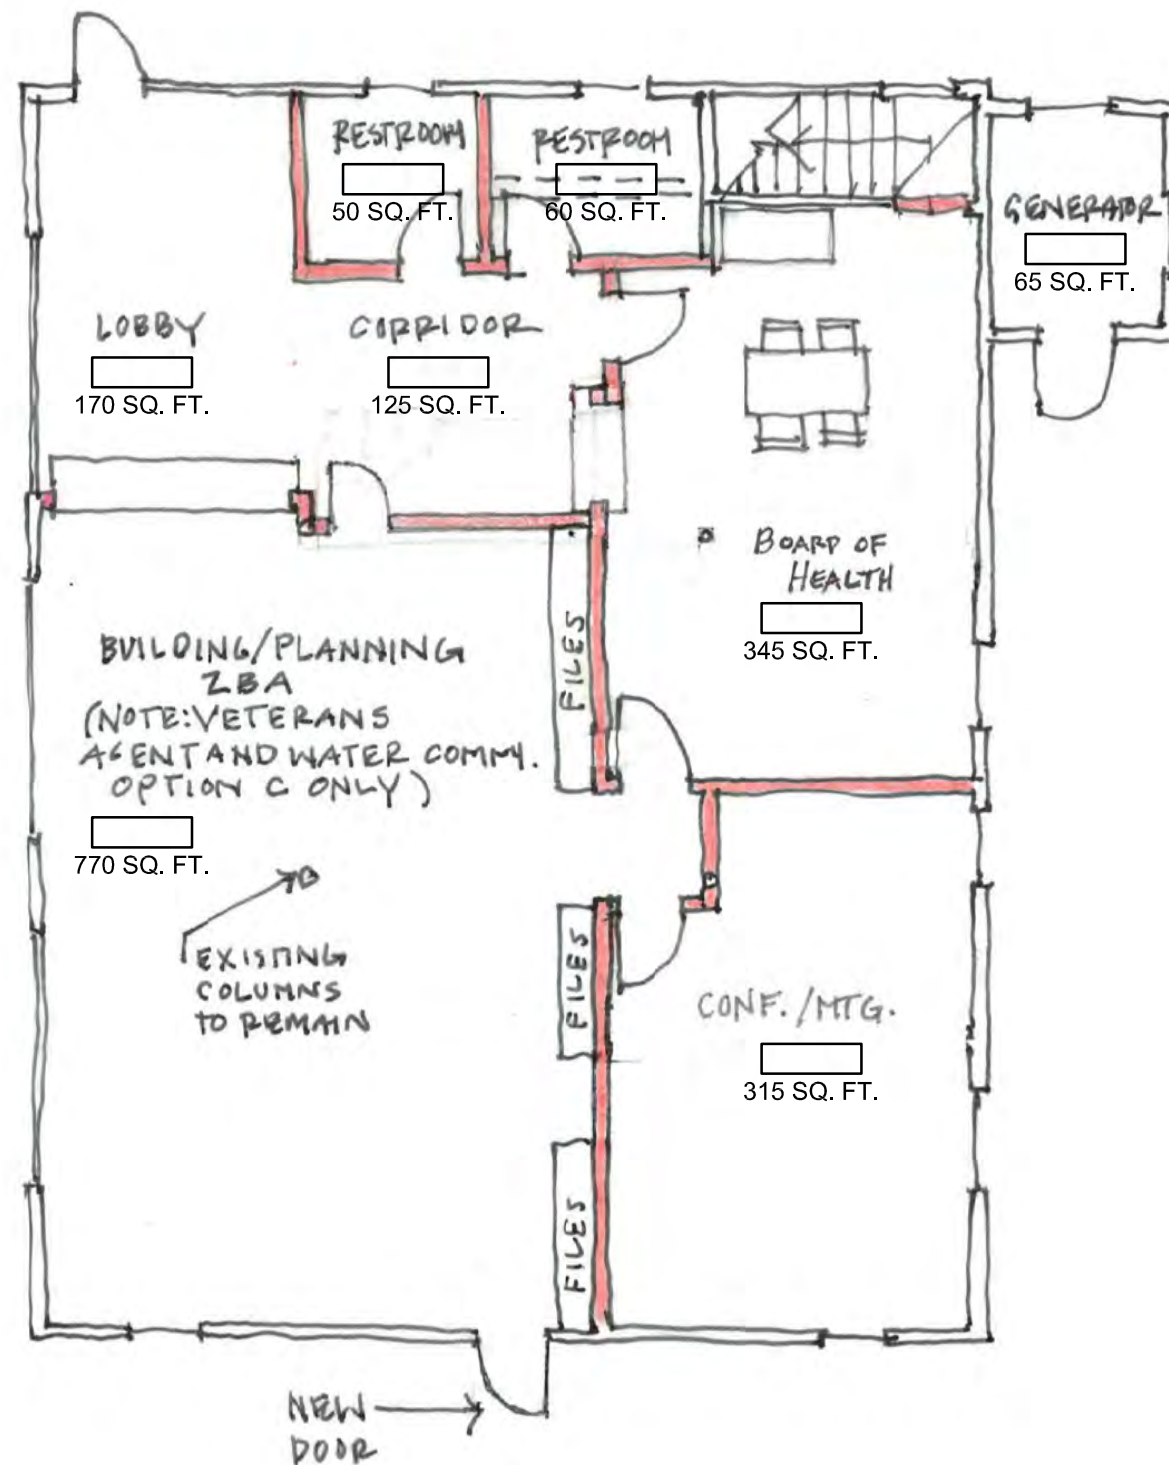 RESTROOM
50 SQ. FT.
RESTROOM
60 SQ. FT.
GENERATOR
65 SQ. FT.
LOBBY
170 SQ. FT.
CORRIDOR
125 SQ. FT.
BOARD OF
HEALTH
345 SQ. FT.
FILES
BUILDING/PLANNING
ZBA
(NOTE: VETERANS
AGENT AND WATER COMMY.
OPTION C ONLY)
770 SQ. FT.
EXISTING
COLUMNS
TO REMAIN
FILES
CONF./MTG.
315 SQ. FT.
FILES
NEW
DOOR